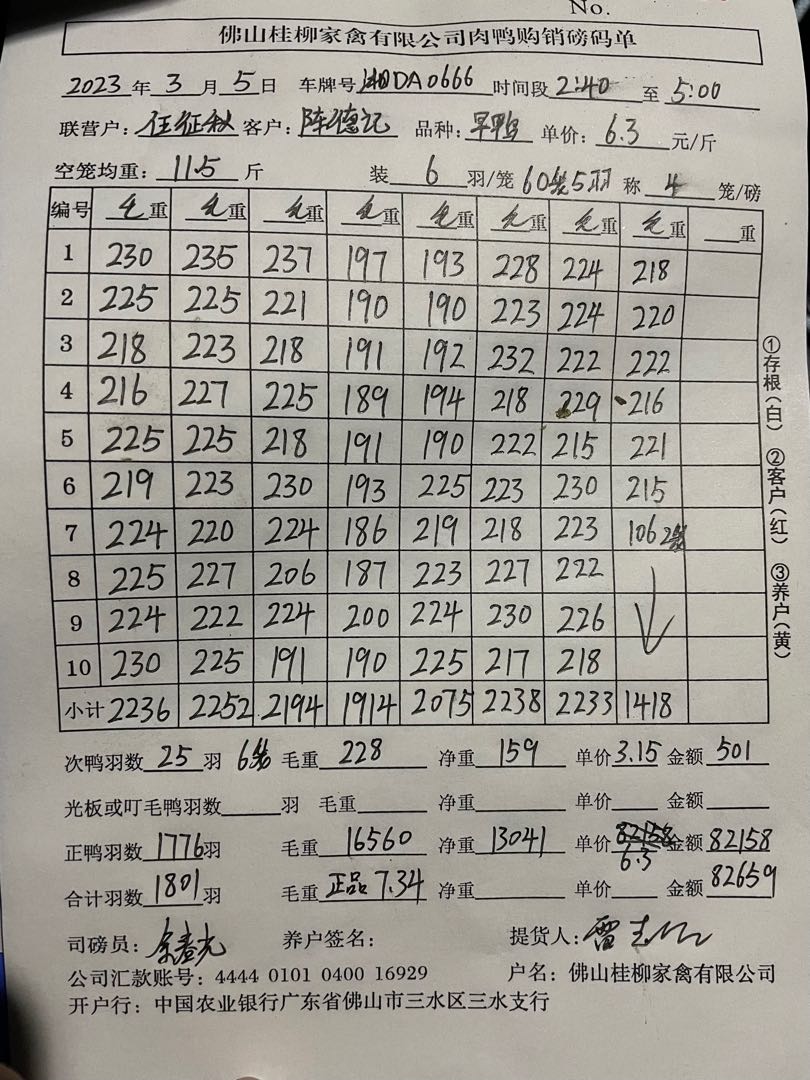 No.
佛山桂柳家禽有限公司肉鸭购销磅码单
2023 年 3 月 5 日 车牌号 湘DA0666 时间段 2:40 至 5:00
联营户: 任征秋 客户: 陈德记 品种: 旱鸭 单价: 6.3 元/斤
空笼均重: 11.5 斤 装 6 羽/笼 60笼5羽 称 4 笼/磅
编号 毛重 毛重 毛重 毛重 毛重 毛重 毛重 毛重 重
1 230 235 237 197 193 228 224 218
2 225 225 221 190 190 223 224 220
3 218 223 218 191 192 232 222 222
4 216 227 225 189 194 218 229 216
5 225 225 218 191 190 222 215 221
6 219 223 230 193 225 223 230 215
7 224 220 224 186 219 218 223 106 2笼
8 225 227 206 187 223 227 222
9 224 222 224 200 224 230 226
10 230 225 191 190 225 217 218
小计 2236 2252 2194 1914 2075 2238 2233 1418
①存根(白) ②客户(红) ③养户(黄)
次鸭羽数 25 羽 6笼 毛重 228 净重 159 单价 3.15 金额 501
光板或叮毛鸭羽数 羽 毛重 净重 单价 金额
正鸭羽数 1776 羽 毛重 16560 净重 13041 单价 6.3 金额 82158
合计羽数 1801 羽 毛重 正品 7.34 净重 单价 金额 82659
司磅员: 养户签名: 提货人: 雷
公司汇款账号: 4444 0101 0400 16929 户名: 佛山桂柳家禽有限公司
开户行: 中国农业银行广东省佛山市三水区三水支行